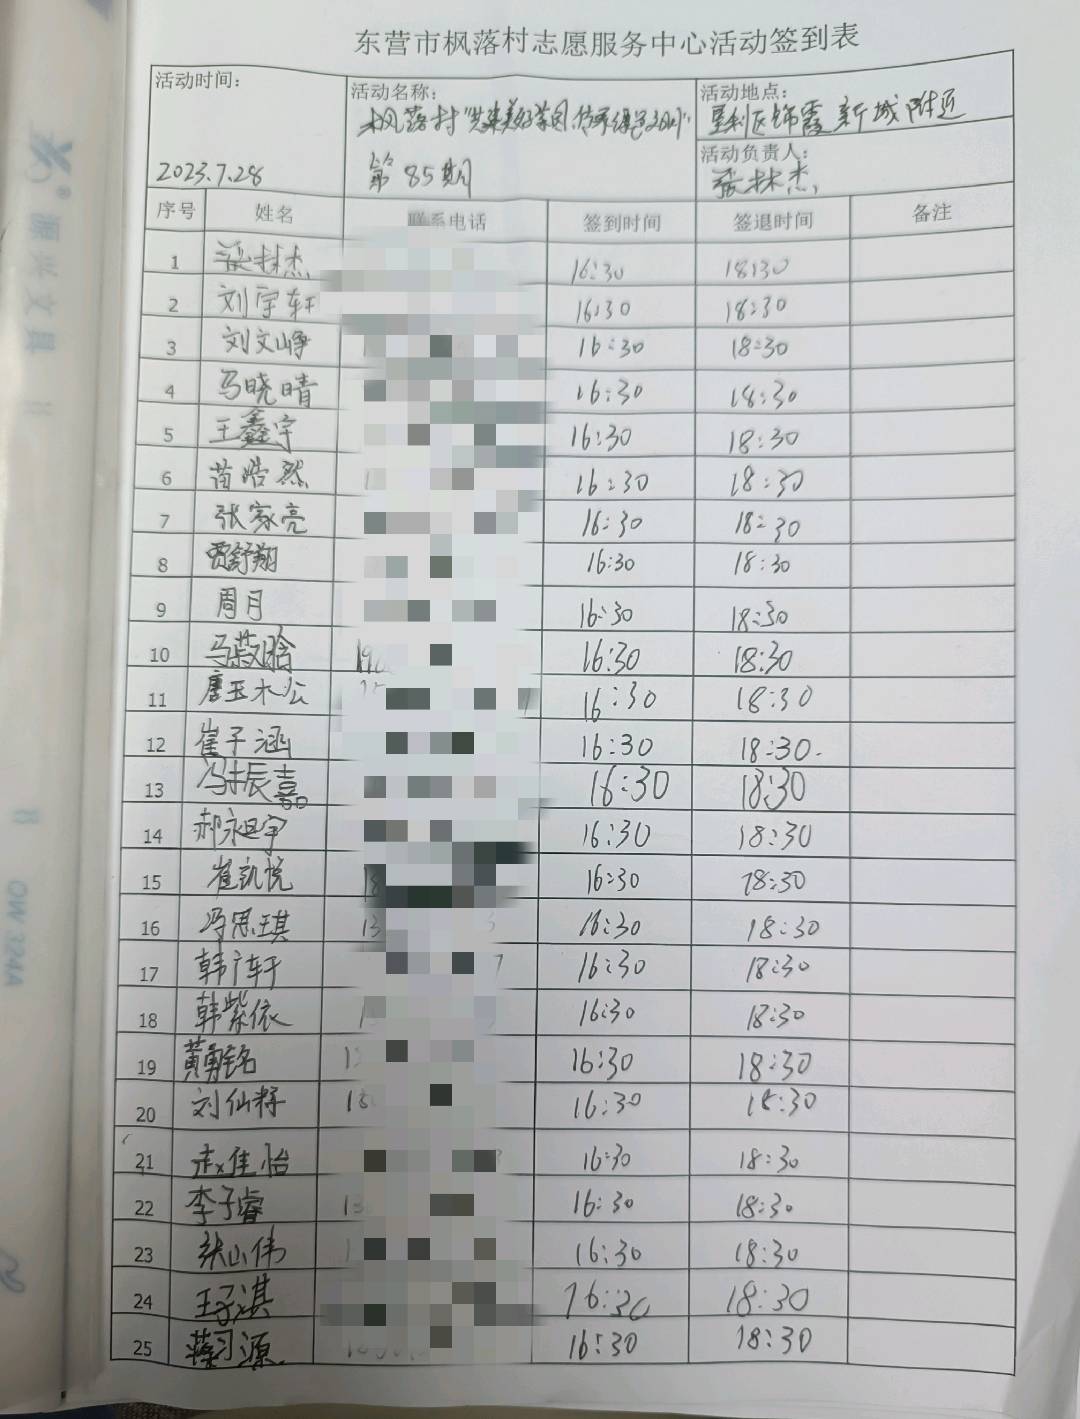 东营市枫落村志愿服务中心活动签到表
活动时间： 活动名称： 活动地点：
枫落村 垦利区锦霞新城附近
活动负责人：
2023.7.28 第85期 张林杰
序号 姓名 联系电话 签到时间 签退时间 备注
1 张林杰 16:30 18:30
2 刘宇轩 16:30 18:30
3 刘文峥 16:30 18:30
4 马晓晴 16:30 18:30
5 王鑫宇 16:30 18:30
6 苗浩然 16:30 18:30
7 张家亮 16:30 18:30
8 贾舒翔 16:30 18:30
9 周月 16:30 18:30
10 马 16:30 18:30
11 唐玉 16:30 18:30
12 崔子涵 16:30 18:30
13 冯振嘉 16:30 18:30
14 郝永 宇 16:30 18:30
15 崔凯悦 16:30 18:30
16 冯思琪 13 16:30 18:30
17 韩广轩 16:30 18:30
18 韩紫依 16:30 18:30
19 黄勇铭 16:30 18:30
20 刘仙 16:30 18:30
21 赵佳怡 16:30 18:30
22 李子睿 16:30 18:30
23 张山伟 16:30 18:30
24 王子淇 16:30 18:30
25 蒋习源 16:30 18:30
顺兴文具
QW 324A